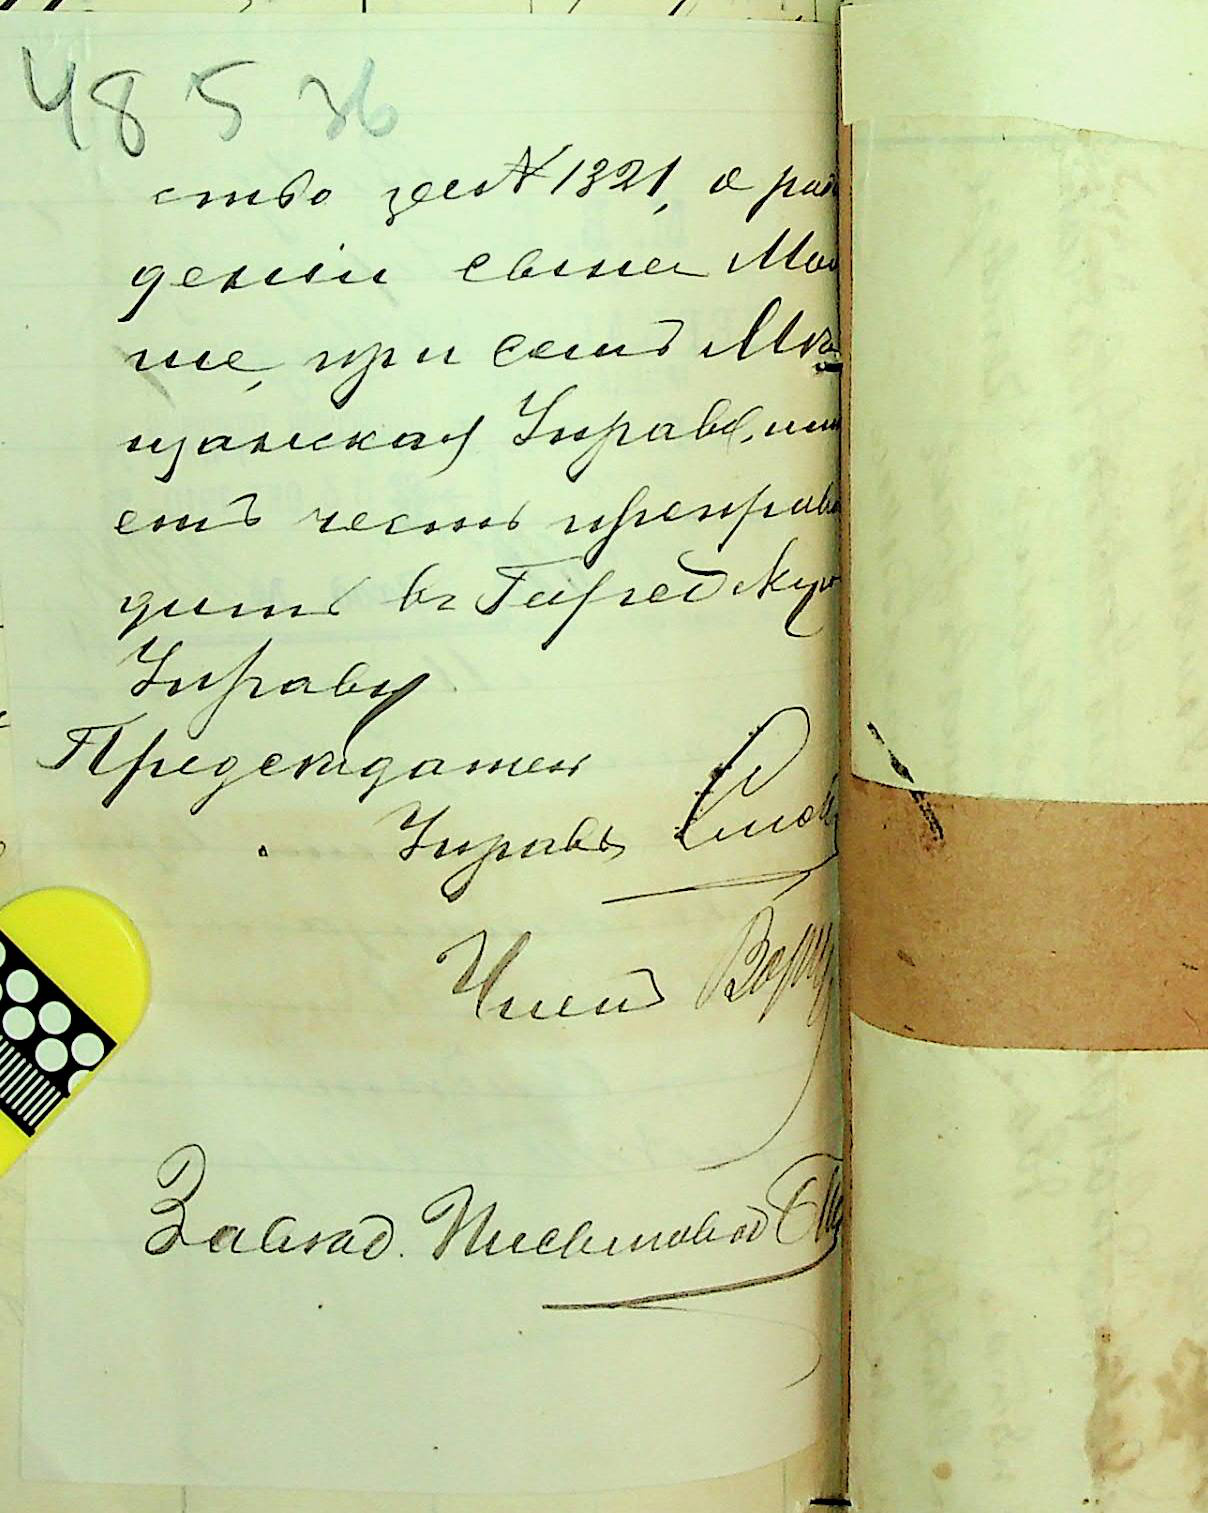 48 5 36
ство за № 1321, о рож
деніи сына Мов
ше, при семъ Мѣ
щанская Управа, имѣ
етъ честь препрово
дить въ Городскую
Управу
Председатель
Управы
Членъ
Завѣд. Письмовод